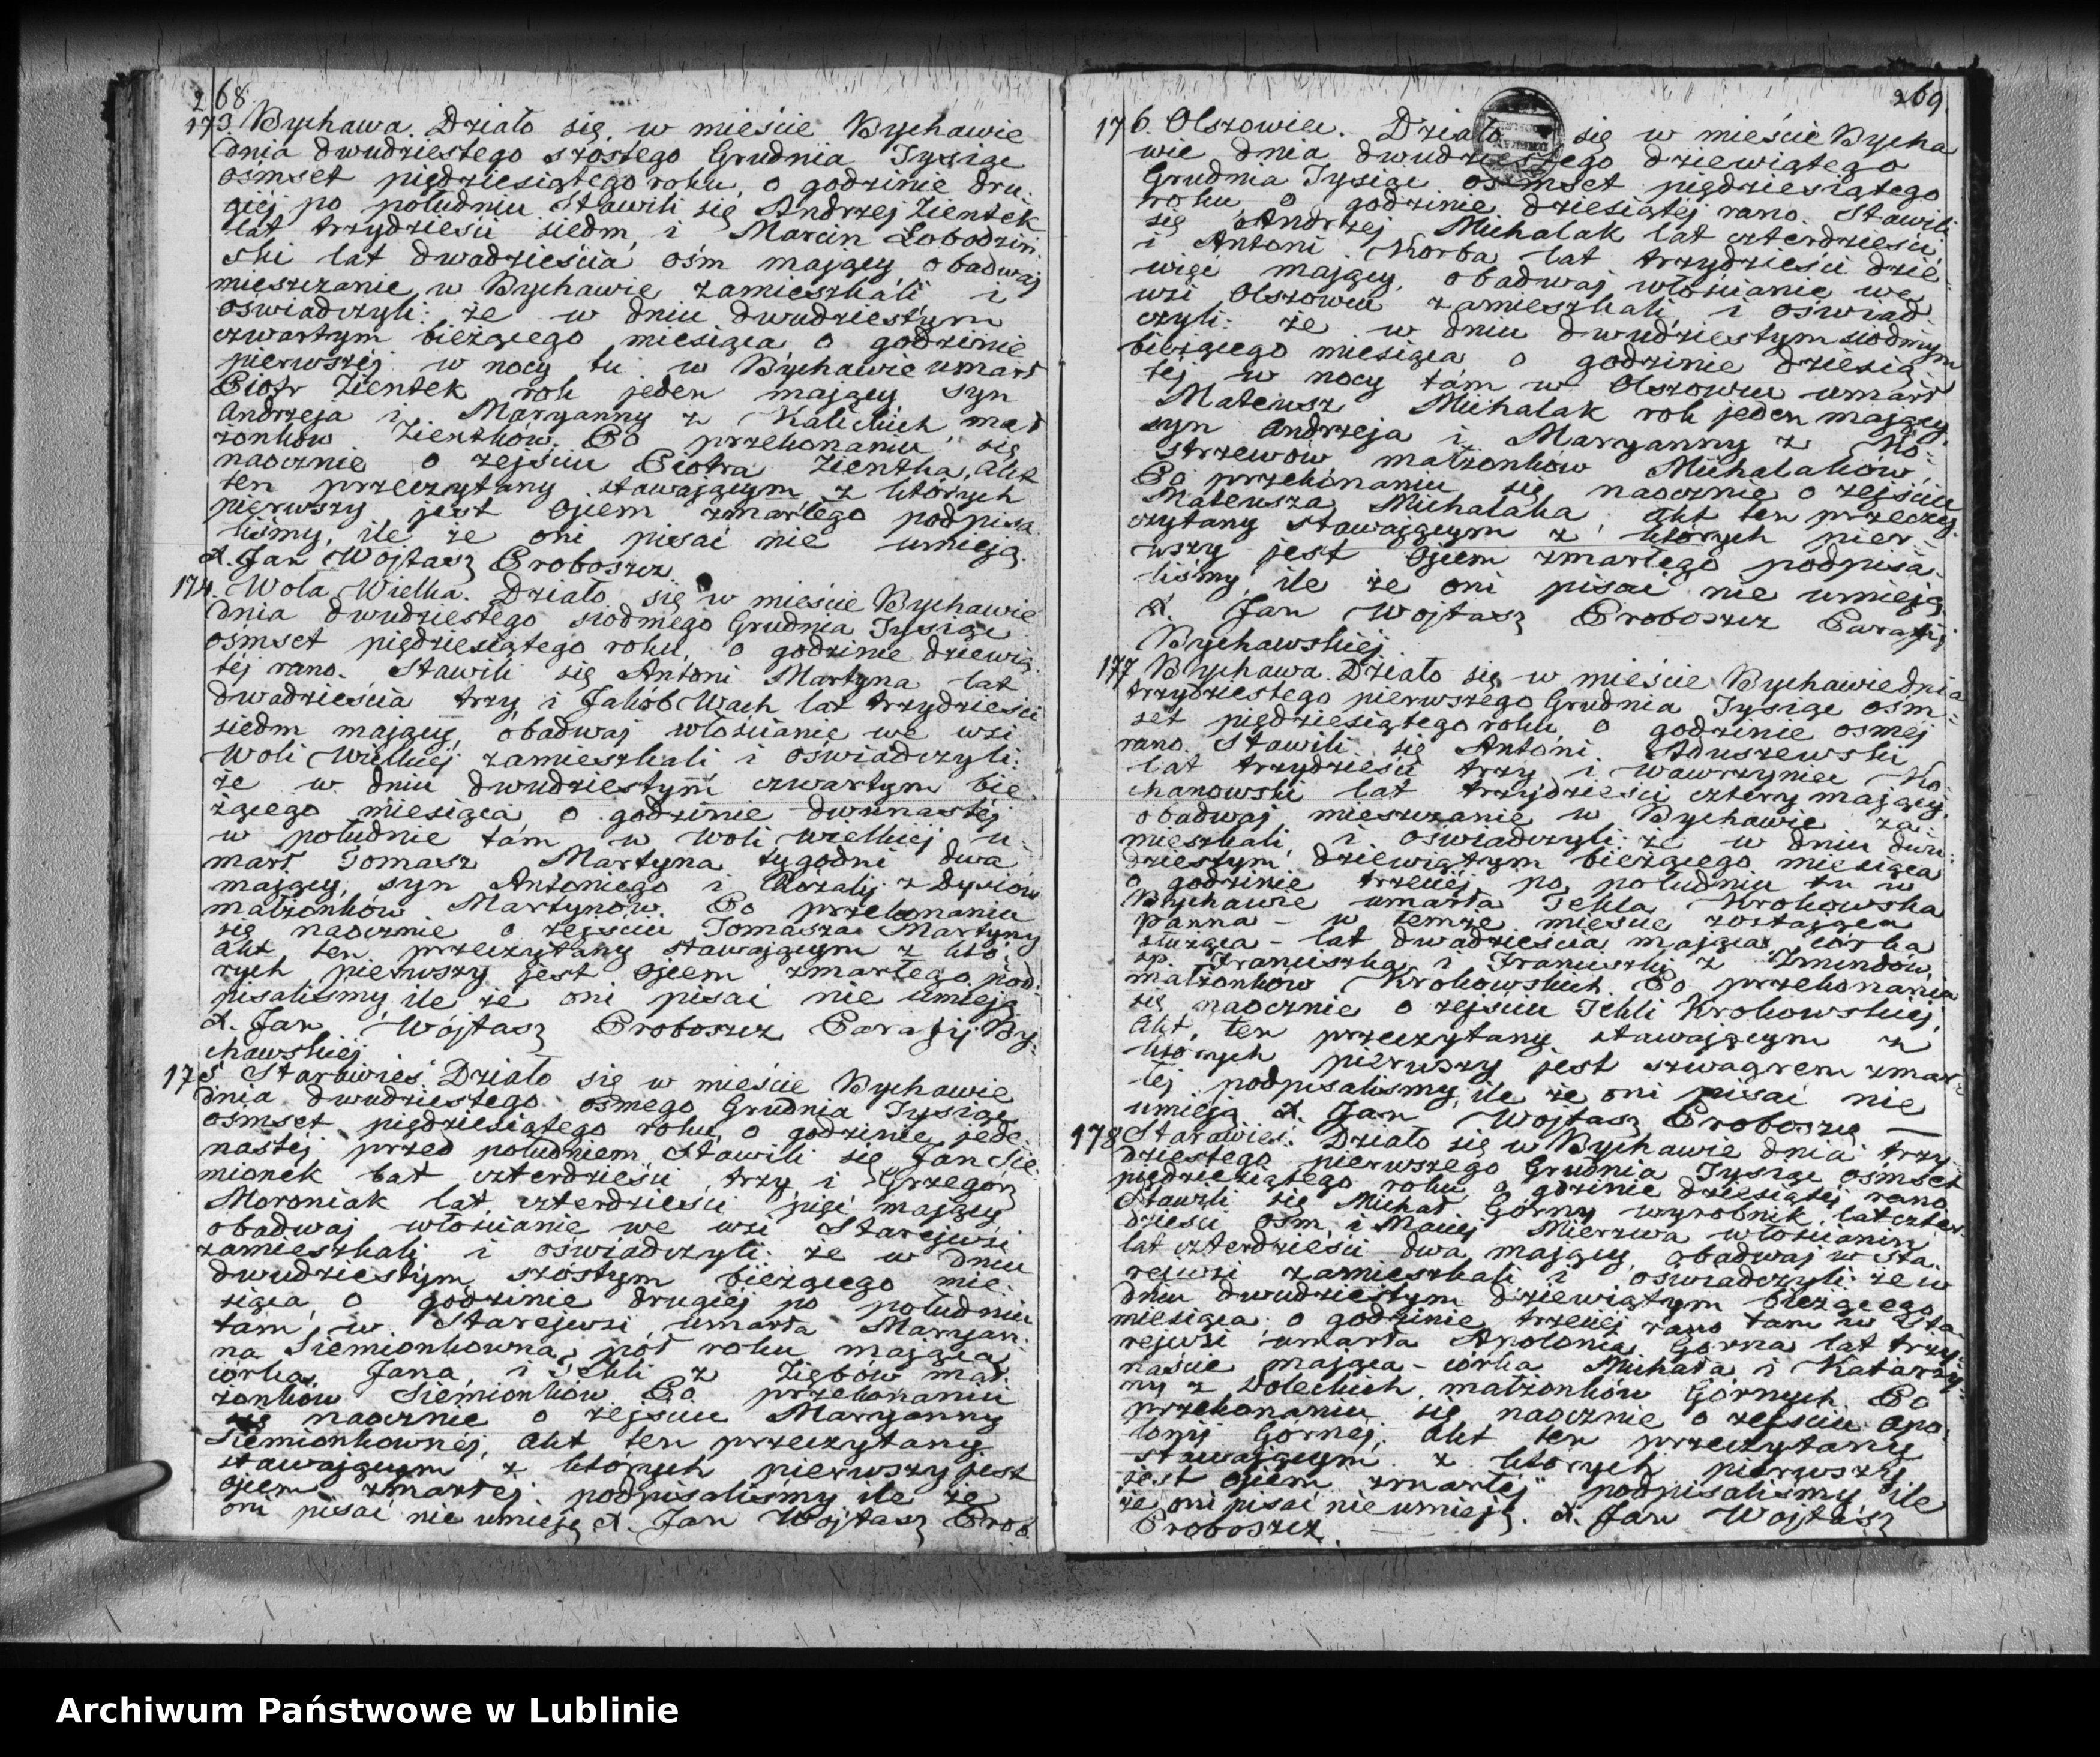 268
173. Bychawa. Działo się w mieście Bychawie
dnia dwudziestego szóstego Grudnia Tysiąc
ośmset pięćdziesiątego roku, o godzinie dru-
giej po południu Stawili się Andrzej Zientek
lat trzydzieści siedm, i Marcin Łobodziń-
ski lat dwadzieścia ośm mający, obadwaj
mieszczanie w Bychawie zamieszkali i
oświadczyli: że w dniu dwudziestym
czwartym bieżącego miesiąca o godzinie
pierwszej w nocy tu w Bychawie umarł
Piotr Zientek rok jeden mający syn
Andrzeja i Maryanny z Kalickich mał-
żonków Zientków. Po przekonaniu się
naocznie o zejściu Piotra Zientka, akt
ten przeczytany stawającym z których
pierwszy jest Ojcem zmarłego podpisa-
liśmy, ile że oni pisać nie umieją.
X. Jan Wojtasz Proboszcz.
174. Wola Wielka. Działo się w mieście Bychawie
dnia dwudziestego siodmego Grudnia Tysiąc
ośmset pięćdziesiątego roku, o godzinie dziewią-
tej rano. Stawili się Antoni Martyna lat
dwadzieścia trzy i Jakób Wach lat trzydzieści
siedm mający, obadwaj włościanie we wsi
Woli Wielkiej zamieszkali i oświadczyli:
że w dniu dwudziestym czwartym bie-
żącego miesiąca o godzinie dwunastej
w południe tam w Woli Wielkiej u-
marł Tomasz Martyna tygodni dwa
mający, syn Antoniego i Rozalij z Dysiów
małżonków Martynów. Po przekonaniu
się naocznie o zejściu Tomasza Martyny
akt ten przeczytany stawającym z któ-
rych pierwszy jest Ojcem zmarłego pod-
pisaliśmy, ile że oni pisać nie umieją
X. Jan Wojtasz Proboszcz Parafij By-
chawskiej.
175 Starawieś Działo się w mieście Bychawie
dnia dwudziestego osmego Grudnia Tysiąc
ośmset pięćdziesiątego roku, o godzinie jede-
nastej przed południem Stawili się Jan Sie-
mionek lat czterdzieści trzy i Grzegorz
Moroniak lat czterdzieści pięć mający
obadwaj włościanie we wsi Starejwsi
zamieszkali i oświadczyli: że w dniu
dwudziestym szóstym bieżącego mie-
siąca, o godzinie drugiej po południu
tam w Starejwsi umarła Maryan-
na Siemionkowna, pół roku mająca
córka Jana i Tekli z Ziębów mał-
żonków Siemionków Po przekonaniu
się naocznie o zejściu Maryanny
Siemionkownej, akt ten przeczytany
stawającym z których pierwszy jest
ojcem zmarłej. podpisaliśmy ile że
oni pisać nie umieją X. Jan Wojtasz Prob.
269.
176. Olszowiec. Działo się w mieście Bycha
wie dnia dwudziestego dziewiątego
Grudnia Tysiąc ośmset pięćdziesiątego
roku o godzinie dziesiątej rano. Stawili
się Andrzej Michalak lat czterdzieści
i Antoni Korba lat trzydzieści dzie-
więć mający, obadwaj włościanie we
wsi Olszowcu zamieszkali i oświad-
czyli: że w dniu dwudziestym siodmym
bieżącego miesiąca o godzinie dziesią-
tej w nocy tam w Olszowcu umarł
Mateusz Michalak rok jeden mający
syn Andrzeja i Maryanny z Ko-
strzewów małżonków Michalaków,
Po przekonaniu się naocznie o zejściu
Mateusza Michalaka akt ten przeczy-
czytany stawającym z których pier-
wszy jest Ojcem zmarłego podpisa-
liśmy, ile że oni pisać nie umieją
X. Jan Wojtasz Proboszcz Parafij
Bychawskiej.
177 Bychawa. Działo się w mieście Bychawie dnia
trzydziestego pierwszego Grudnia Tysiąc ośm-
set pięćdziesiątego roku, o godzinie osmej
rano. Stawili się Antoni Aduszewski
lat trzydzieści trzy i Wawrzyniec Ko-
chanowski lat trzydzieści cztery mający
obadwaj mieszczanie w Bychawie za-
mieszkali, i oświadczyli: że w dniu dwu-
dziestym dziewiątym bieżącego miesiąca
o godzinie trzeciej po południu tu w
Bychawie umarła Tekla Krokowska
panna – w temże mieście zostająca
służąca – lat dwadzieścia mająca, córka
sp. Franciszka i Franciszki z Zmindów
małżonków Krokowskich. Po przekonaniu
się naocznie o zejściu Tekli Krokowskiej
akt ten przeczytany stawającym z
których pierwszy jest szwagrem zmar-
łej podpisaliśmy, ile że oni pisać nie
umieją X. Jan Wojtasz Proboszcz
178 Starawieś. Działo się w Bychawie dnia trzy-
dziestego pierwszego Grudnia Tysiąc ośmset
pięćdziesiątego roku, o godzinie dziesiątej rano
Stawili się Michał Górny wyrobnik, lat czter-
dzieści ośm, i Maciej Mierzwa włościanin
lat czterdzieści dwa mający, obadwaj w Sta-
rejwsi zamieszkali i oświadczyli: że w
dniu dwudziestym dziewiątym bieżącego
miesiąca o godzinie trzeciej rano tam w Sta-
rejwsi umarła Apolonia Górna lat trzy-
naście mająca – córka Michała i Katarzy-
ny z Doleckich małżonków Górnych Po
przekonaniu się naocznie o zejściu Apo-
lonij Górnej, akt ten przeczytany
stawającym z których pierwszy
jest ojcem zmarłej podpisaliśmy ile
że oni pisać nie umieją. X. Jan Wojtasz
Proboszcz.
Archiwum Państwowe w Lublinie